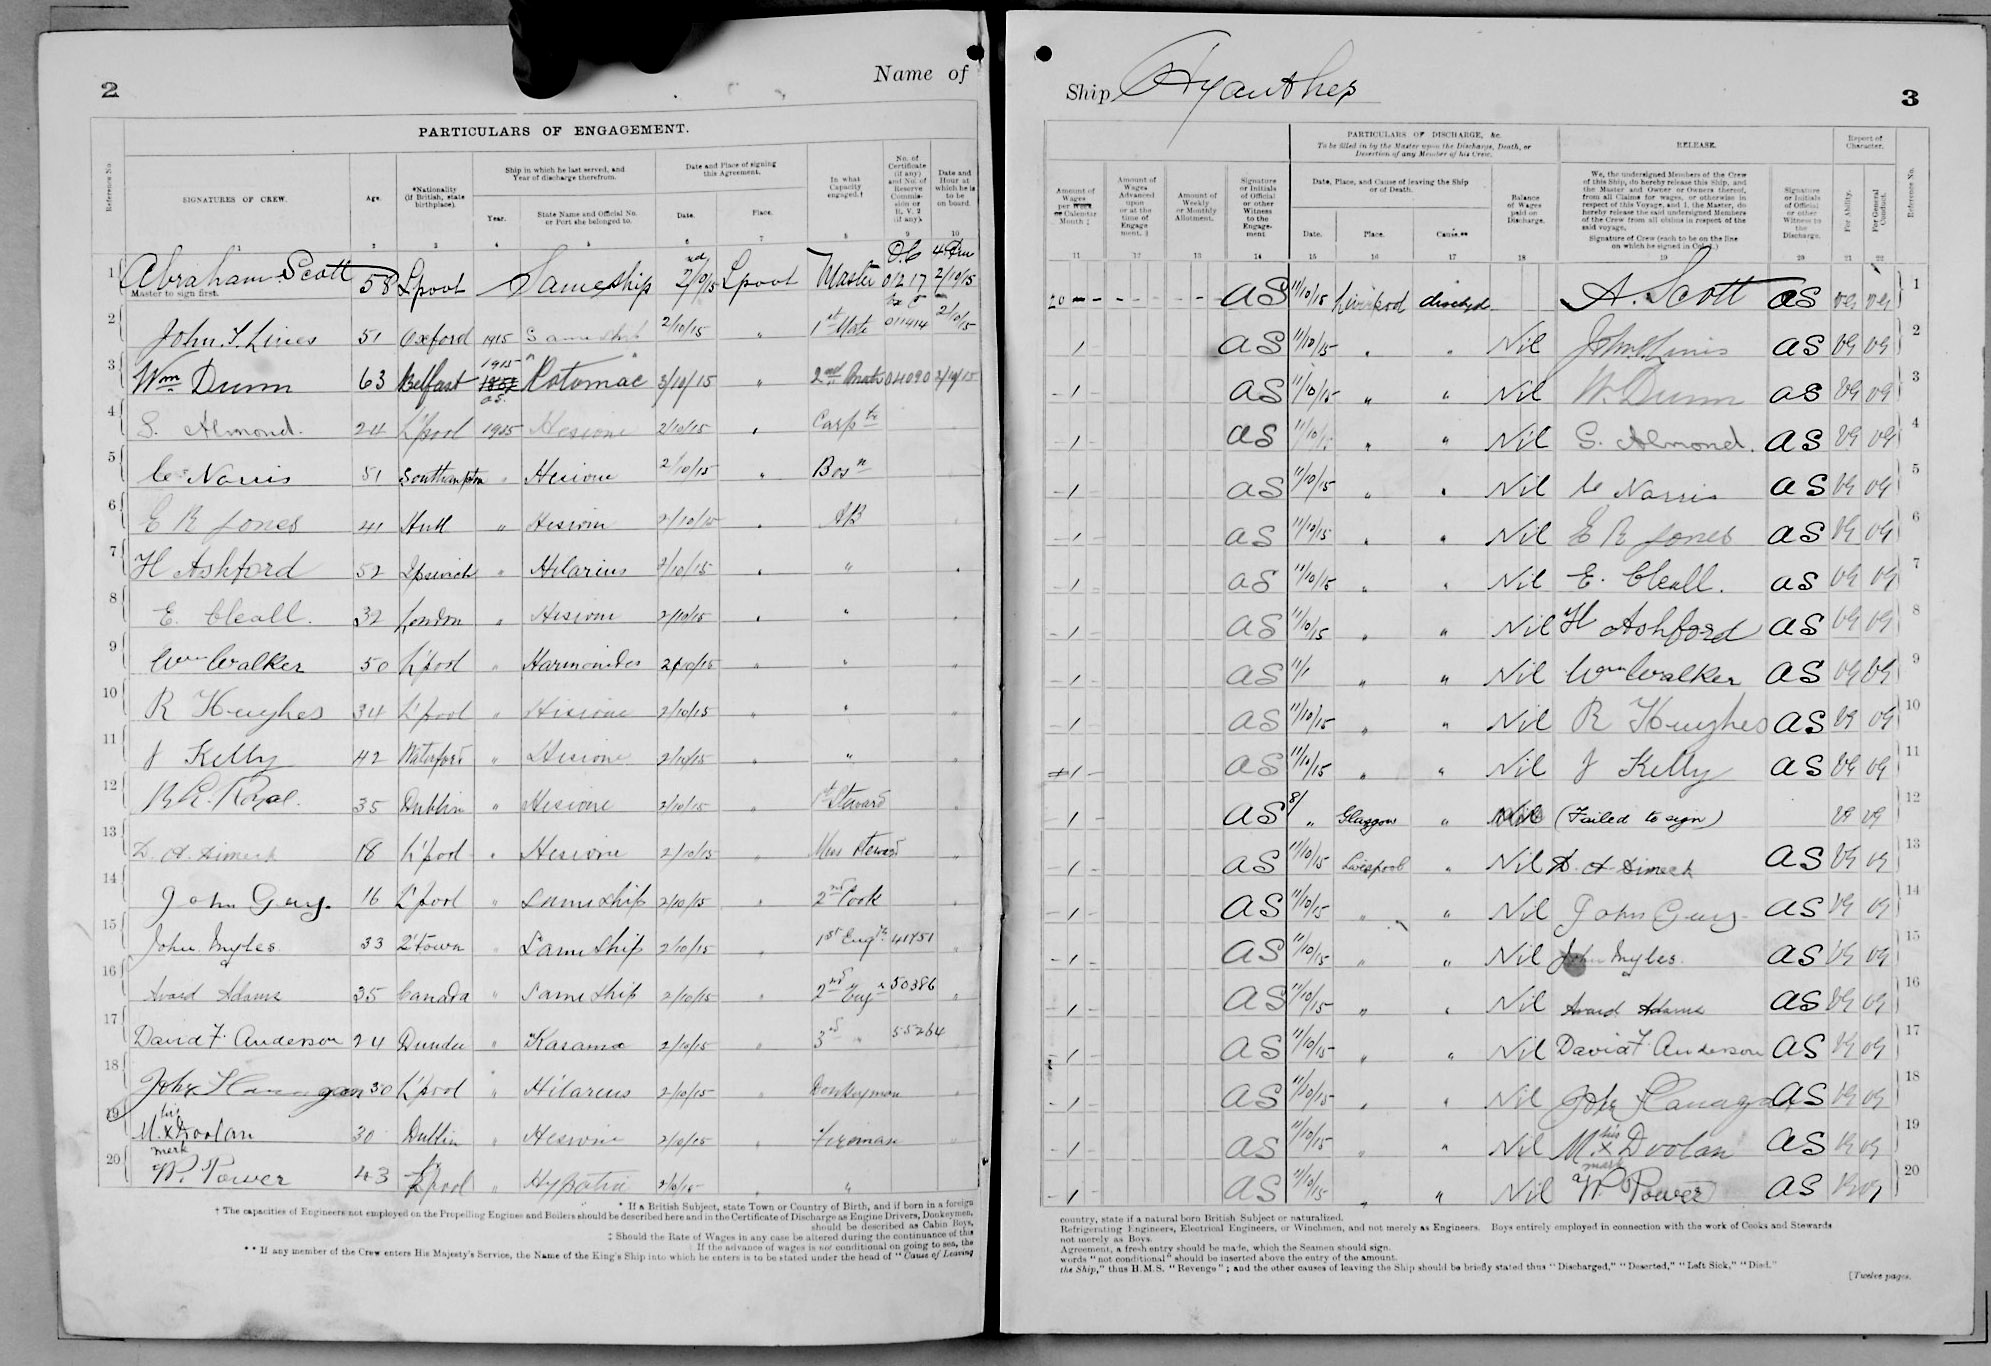 2
Name of
PARTICULARS OF ENGAGEMENT.
Reference No.
SIGNATURES OF CREW.
Age.
*Nationality (if British, state birthplace).
Ship in which he last served, and Year of discharge therefrom.
Year.
State Name and Official No. or Port she belonged to.
Date and Place of signing this Agreement.
Date.
Place.
In what Capacity engaged.†
No. of Certificate (if any) and No. of Reserve Commission or R.V. 2 (if any).
Date and Hour at which he is to be on board.
2 3 4 5 6 7 8 9 10
1 Abraham Scott 58 L'pool Same ship L'pool Master 01217 2/10/15
Master to sign first.
2 John 51 Oxford 1915 Same Ship 2/10/15 " 1st Mate 011414 2/10/15
3 Wm Dunn 63 Belfast 1915 Potomac 2/10/15 " 2nd Mate 04090 2/10/15
4 S. Almond. 24 L'pool 1915 Hesione 2/10/15 " Carptr
5 Norris 51 Southampton " Hesione 2/10/15 " Bosn
6 E R Jones 41 Hull " Hesione 2/10/15 " AB
7 H Ashford 52 Ipswich " Hilarius 2/10/15 " "
8 E. Cleall. 32 London " Hesione 2/10/15 " "
9 Wm Walker 50 L'pool " Harmonides 2/10/15 " "
10 R Hughes 34 L'pool " Hesione 2/10/15 " "
11 J Kelly 42 Waterford " Hesione 2/10/15 " "
12 35 Dublin " Hesione 2/10/15 " Steward
13 D. A. Dimech 18 L'pool " Hesione 2/10/15 " Mess Steward
14 John Guy. 16 L'pool " Same ship 2/10/15 " 2nd Cook
15 John Myles 33 Q'town " Same Ship 2/10/15 " 1st Engr 41751
16 Avard Adams 35 Canada " Same Ship 2/10/15 " 2nd Engr 50386
17 David F. Anderson 24 Dundee " Kasama 2/10/15 " 3rd " 55264
18 John Flanagan 30 L'pool " Hilarius 2/10/15 " Donkeyman
19 M. his x mark Doolan 30 Dublin " Hesione 2/10/15 " Fireman
20 W. Power 43 L'pool " Hypatia 2/10/15 " "
* If a British Subject, state Town or Country of Birth, and if born in a foreign
† The capacities of Engineers not employed on the Propelling Engines and Boilers should be described here and in the Certificate of Discharge as Engine Drivers, Donkeymen,
should be described as Cabin Boys,
‡ Should the Rate of Wages in any case be altered during the continuance of this
If the advance of wages is not conditional on going to sea, the
** If any member of the Crew enters His Majesty's Service, the Name of the King's Ship into which he enters is to be stated under the head of "Cause of Leaving
Ship
3
PARTICULARS OF DISCHARGE, &c.
To be filled in by the Master upon the Discharge, Death, or Desertion of any Member of his Crew.
RELEASE.
Report of Character.
Amount of Wages per Week or Calendar Month ‡
Amount of Wages Advanced upon or at the time of Engagement. ‡
Amount of Weekly or Monthly Allotment.
Signature or Initials of Official or other Witness to the Engagement
Date, Place, and Cause of leaving the Ship or of Death.
Date.
Place.
Cause.**
Balance of Wages paid on Discharge.
We, the undersigned Members of the Crew of this Ship, do hereby release this Ship, and the Master and Owner or Owners thereof, from all Claims for wages, or otherwise in respect of this Voyage, and I, the Master, do hereby release the said undersigned Members of the Crew from all claims in respect of the said voyage.
Signature of Crew (each to be on the line on which he signed in Col. 1.)
Signature or Initials of Official or other Witness to the Discharge.
For Ability.
For General Conduct.
Reference No.
11 12 13 14 15 16 17 18 19 20 21 22
AS 11/10/15 Liverpool dischgd A. Scott AS VG VG 1
1 AS 11/10/15 " " Nil AS VG VG 2
1 AS 11/10/15 " " Nil W. Dunn AS VG VG 3
1 AS 11/10/15 " " Nil S. Almond. AS VG VG 4
1 AS 11/10/15 " " Nil Norris AS VG VG 5
1 AS 11/10/15 " " Nil E R Jones AS VG VG 6
1 AS 11/10/15 " " Nil E. Cleall. AS VG VG 7
1 AS 11/10/15 " " Nil H Ashford AS VG VG 8
1 AS 11/1 " " Nil Wm Walker AS VG VG 9
1 AS 11/10/15 " " Nil R Hughes AS VG VG 10
1 AS 11/10/15 " " Nil J Kelly AS VG VG 11
1 AS 8/ " Glasgow " Nil (Failed to sign) VG VG 12
1 AS 11/10/15 Liverpool " Nil D. A. Dimech AS VG VG 13
1 AS 11/10/15 " " Nil John Guy AS VG VG 14
1 AS 11/10/15 " " Nil John Myles. AS VG VG 15
1 AS 11/10/15 " " Nil Avard Adams AS VG VG 16
1 AS 11/10/15 " " Nil David F. Anderson AS VG VG 17
1 AS 11/10/15 " " Nil John Flanagan AS VG VG 18
1 AS 11/10/15 " " Nil M. his x mark Doolan AS VG VG 19
1 AS 11/10/15 " " Nil W. Power AS VG VG 20
country, state if a natural born British Subject or naturalized.
Refrigerating Engineers, Electrical Engineers, or Winchmen, and not merely as Engineers. Boys entirely employed in connection with the work of Cooks and Stewards
not merely as Boys.
Agreement, a fresh entry should be made, which the Seamen should sign.
words "not conditional" should be inserted above the entry of the amount.
the Ship," thus H.M.S. "Revenge"; and the other causes of leaving the Ship should be briefly stated thus "Discharged," "Deserted," "Left Sick," "Died."
[Twelve pages.